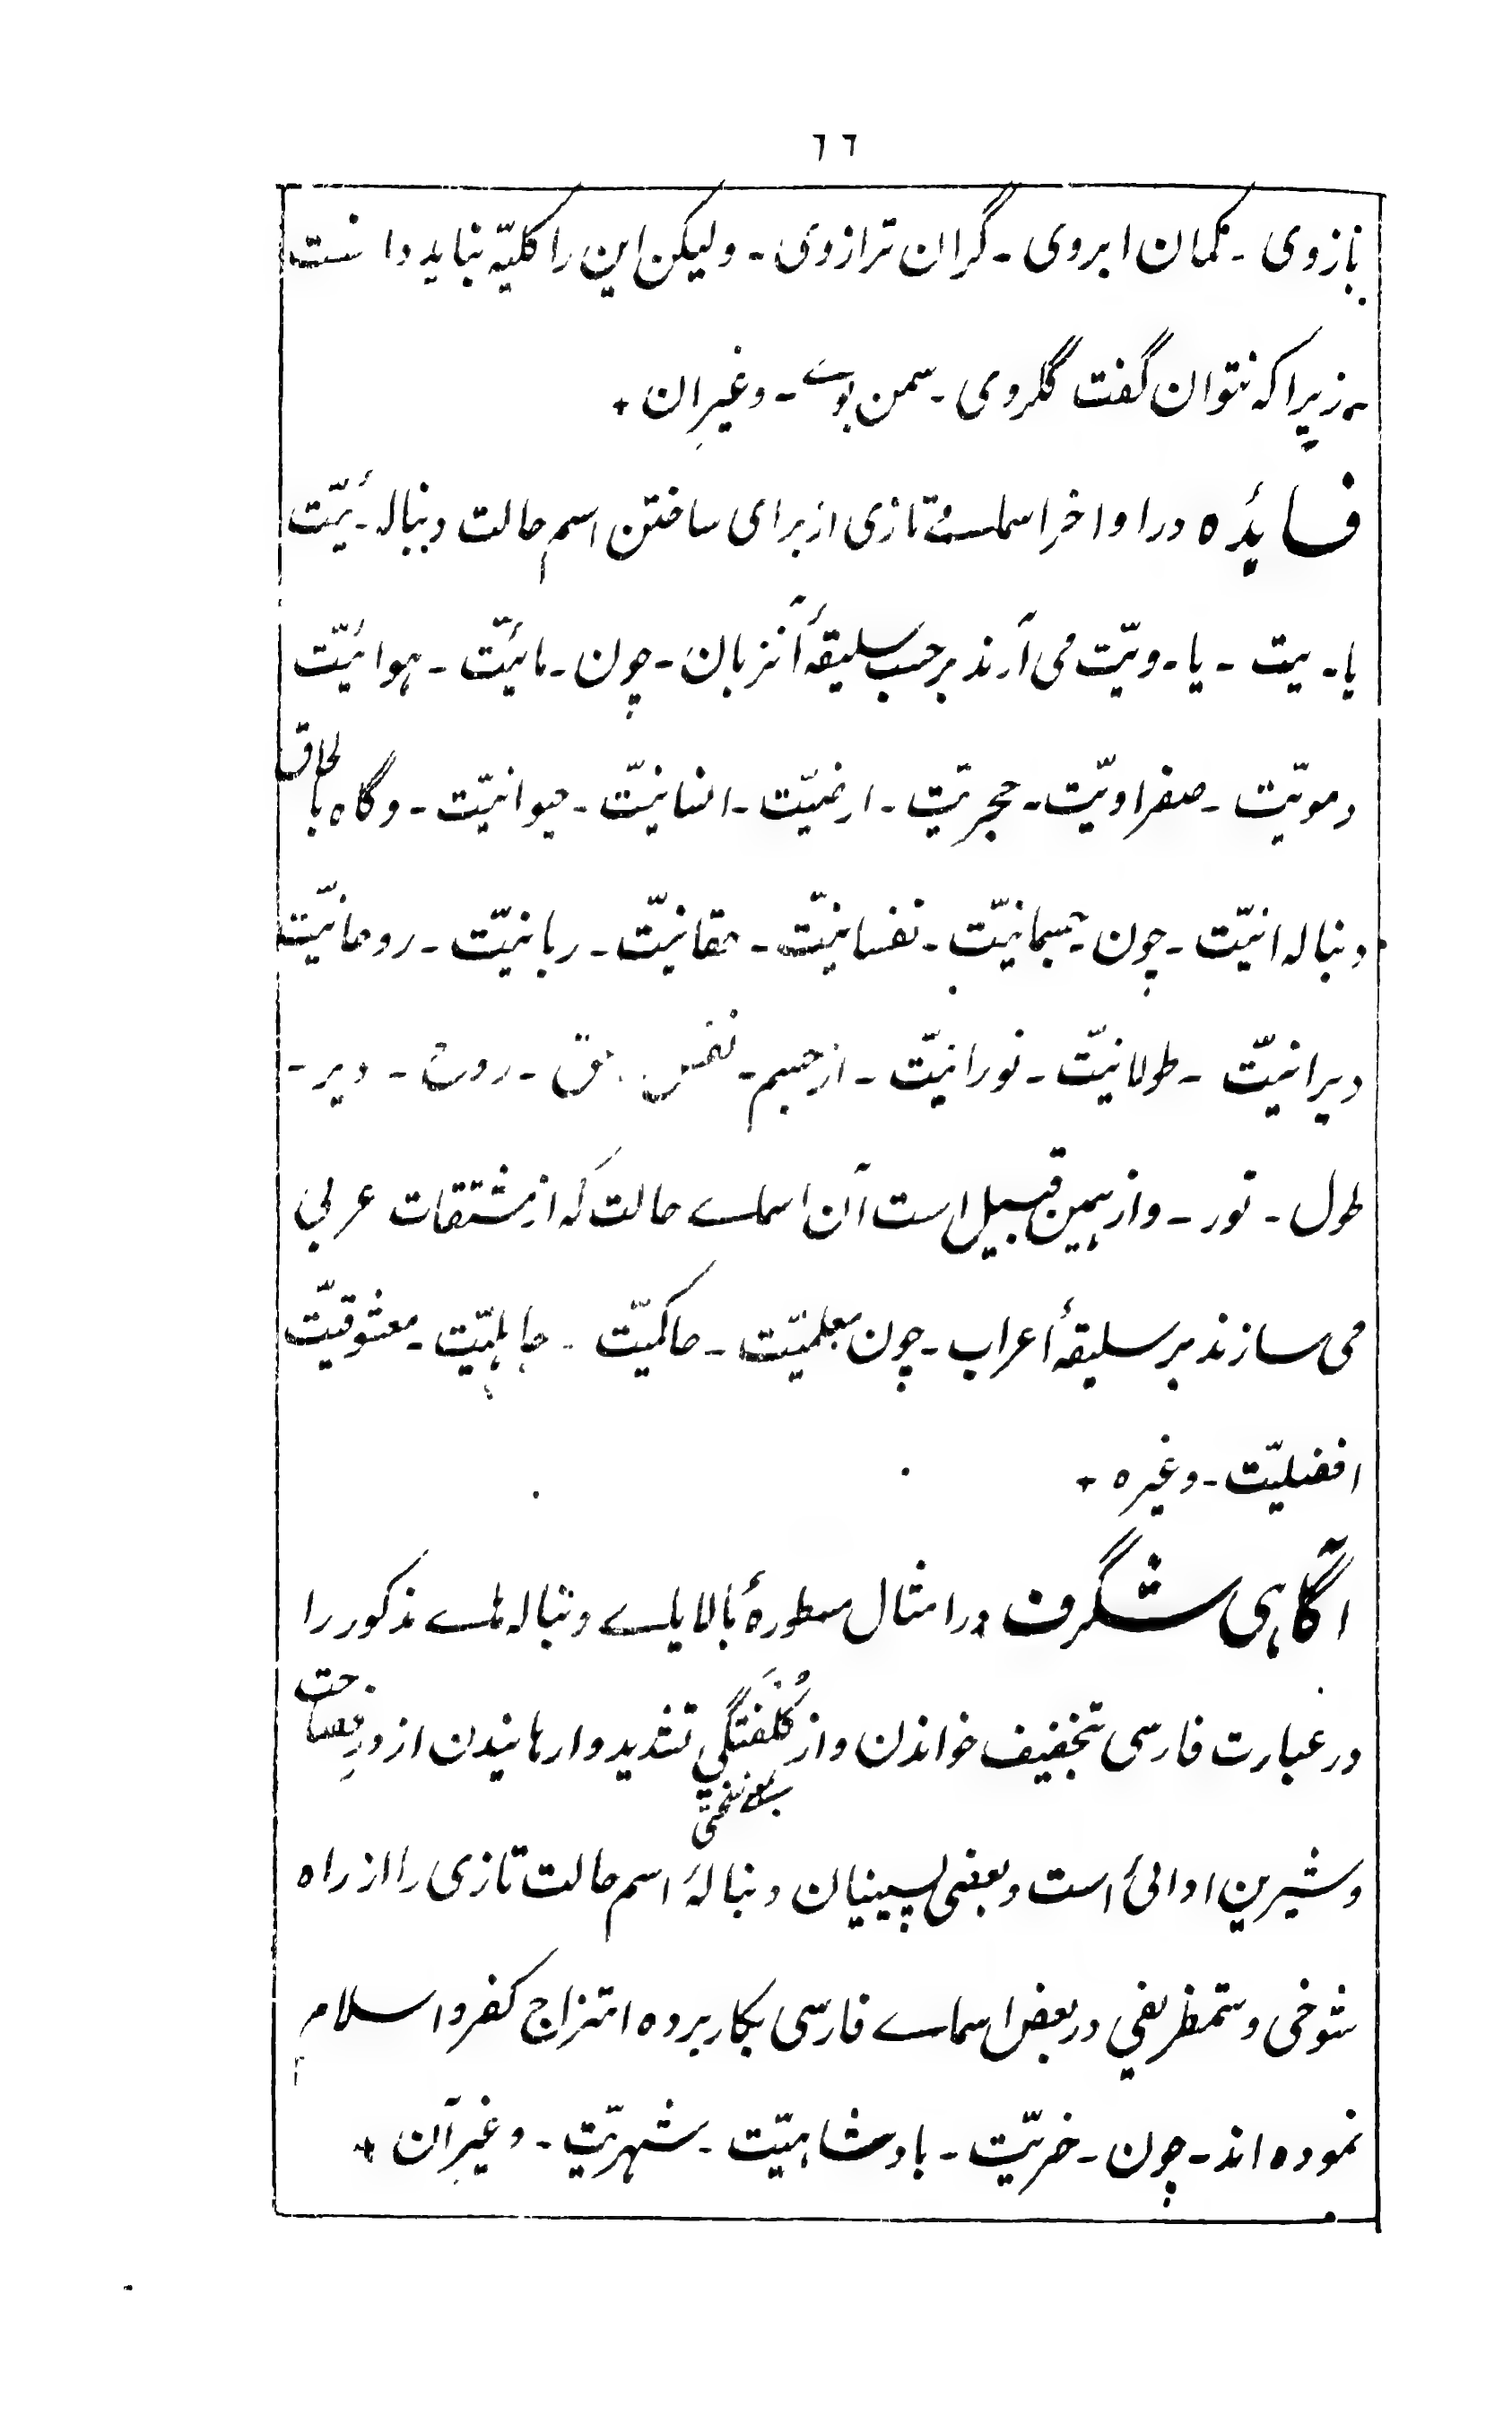 ٦٦
بازوی - کمان ابروی - گران ترازوی - ولیکن این را کلیّه نباید دانست
زیرا که نتوان گفت گلروی - سمن بوے - وغیران +
فائده در اواخر اسماے تازی از برای ساختن اسم حالت دنباله - ئیّت
یا - یت - یا - ویّت می آرند برحسب سلیقۀ آنزبان - چون - مائیّت - هوائیّت
دمویّت - صفراویّت - حجریّت - ارضیّت - انسانیّت - حیوانیّت - وگاه بالحاق
دنباله انیّت - چون - جسمانیّت - نفسانیّت - حقانیّت - ربانیّت - روحانیّت
دیرانیّت - طولانیّت - نورانیّت - از جسم - نفس - حق - روح - دیر -
طول - نور - واز همین قبیل است آن اسماے حالت که از مشتقات عربی
می سازند بر سلیقۀ اعراب - چون معلمیّت - حاکمیّت - جاهلیّت - معشوقیّت
افضلیّت - وغیره +
آگاهی شگرف در امثال مسطورۀ بالا یاے دنباله هاے مذکور را
در عبارت فارسی بتخفیف خواندن واز کُلُفتگی تشدید وارهانیدن از ورز فصاحت
بمعنی سختی
وشیرین ادائی است وبعضی پسینیان دنبالۀ اسم حالت تازی را از راه
شوخی وستمظریفی در بعض اسماے فارسی بکار برده امتزاج کفر واسلام
نموده اند - چون - خریّت - بادشاهیّت - شهریّت - وغیر آن +